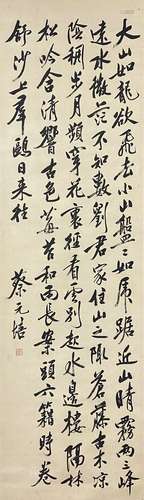 大山如龍欲飛去小山盤盤如虎踞近山晴霧兩三峰
遠水微茫不知數劉君家住山之隈蒼藤古木凉
陰稠步月頻穿花裏徑看雲別起水邊樓隔林
松吟含清響古色莓苔和雨長案頭六籍時卷
舒沙上群鷗日來往
蔡元培